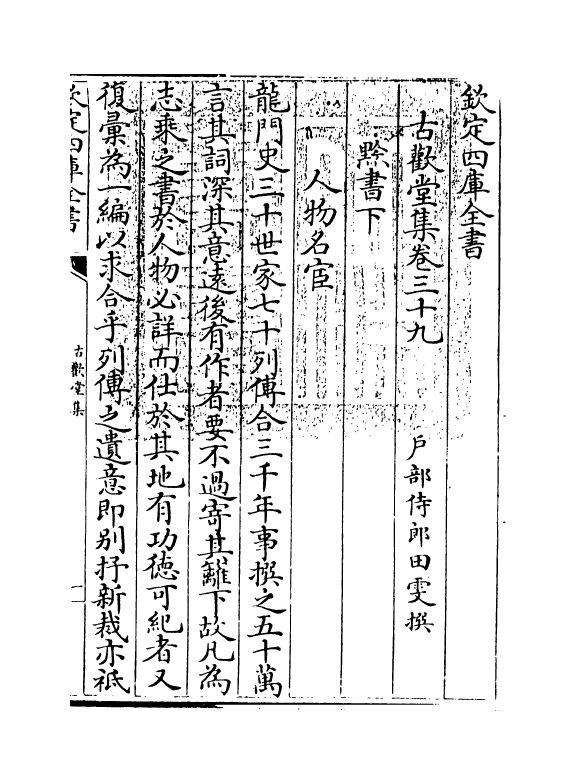 欽定四庫全書
古歡堂集卷三十九 戶部侍郎田雯撰
黔書下
人物名宦
龍門史三十世家七十列傳合三千年事撰之五十萬
言其詞深其意遠後有作者要不過寄其籬下故凡為
志乘之書於人物必詳而仕於其地有功德可紀者又
復彙為一編以求合乎列傳之遺意即别抒新裁亦祗
欽定四庫全書
古歡堂集
一